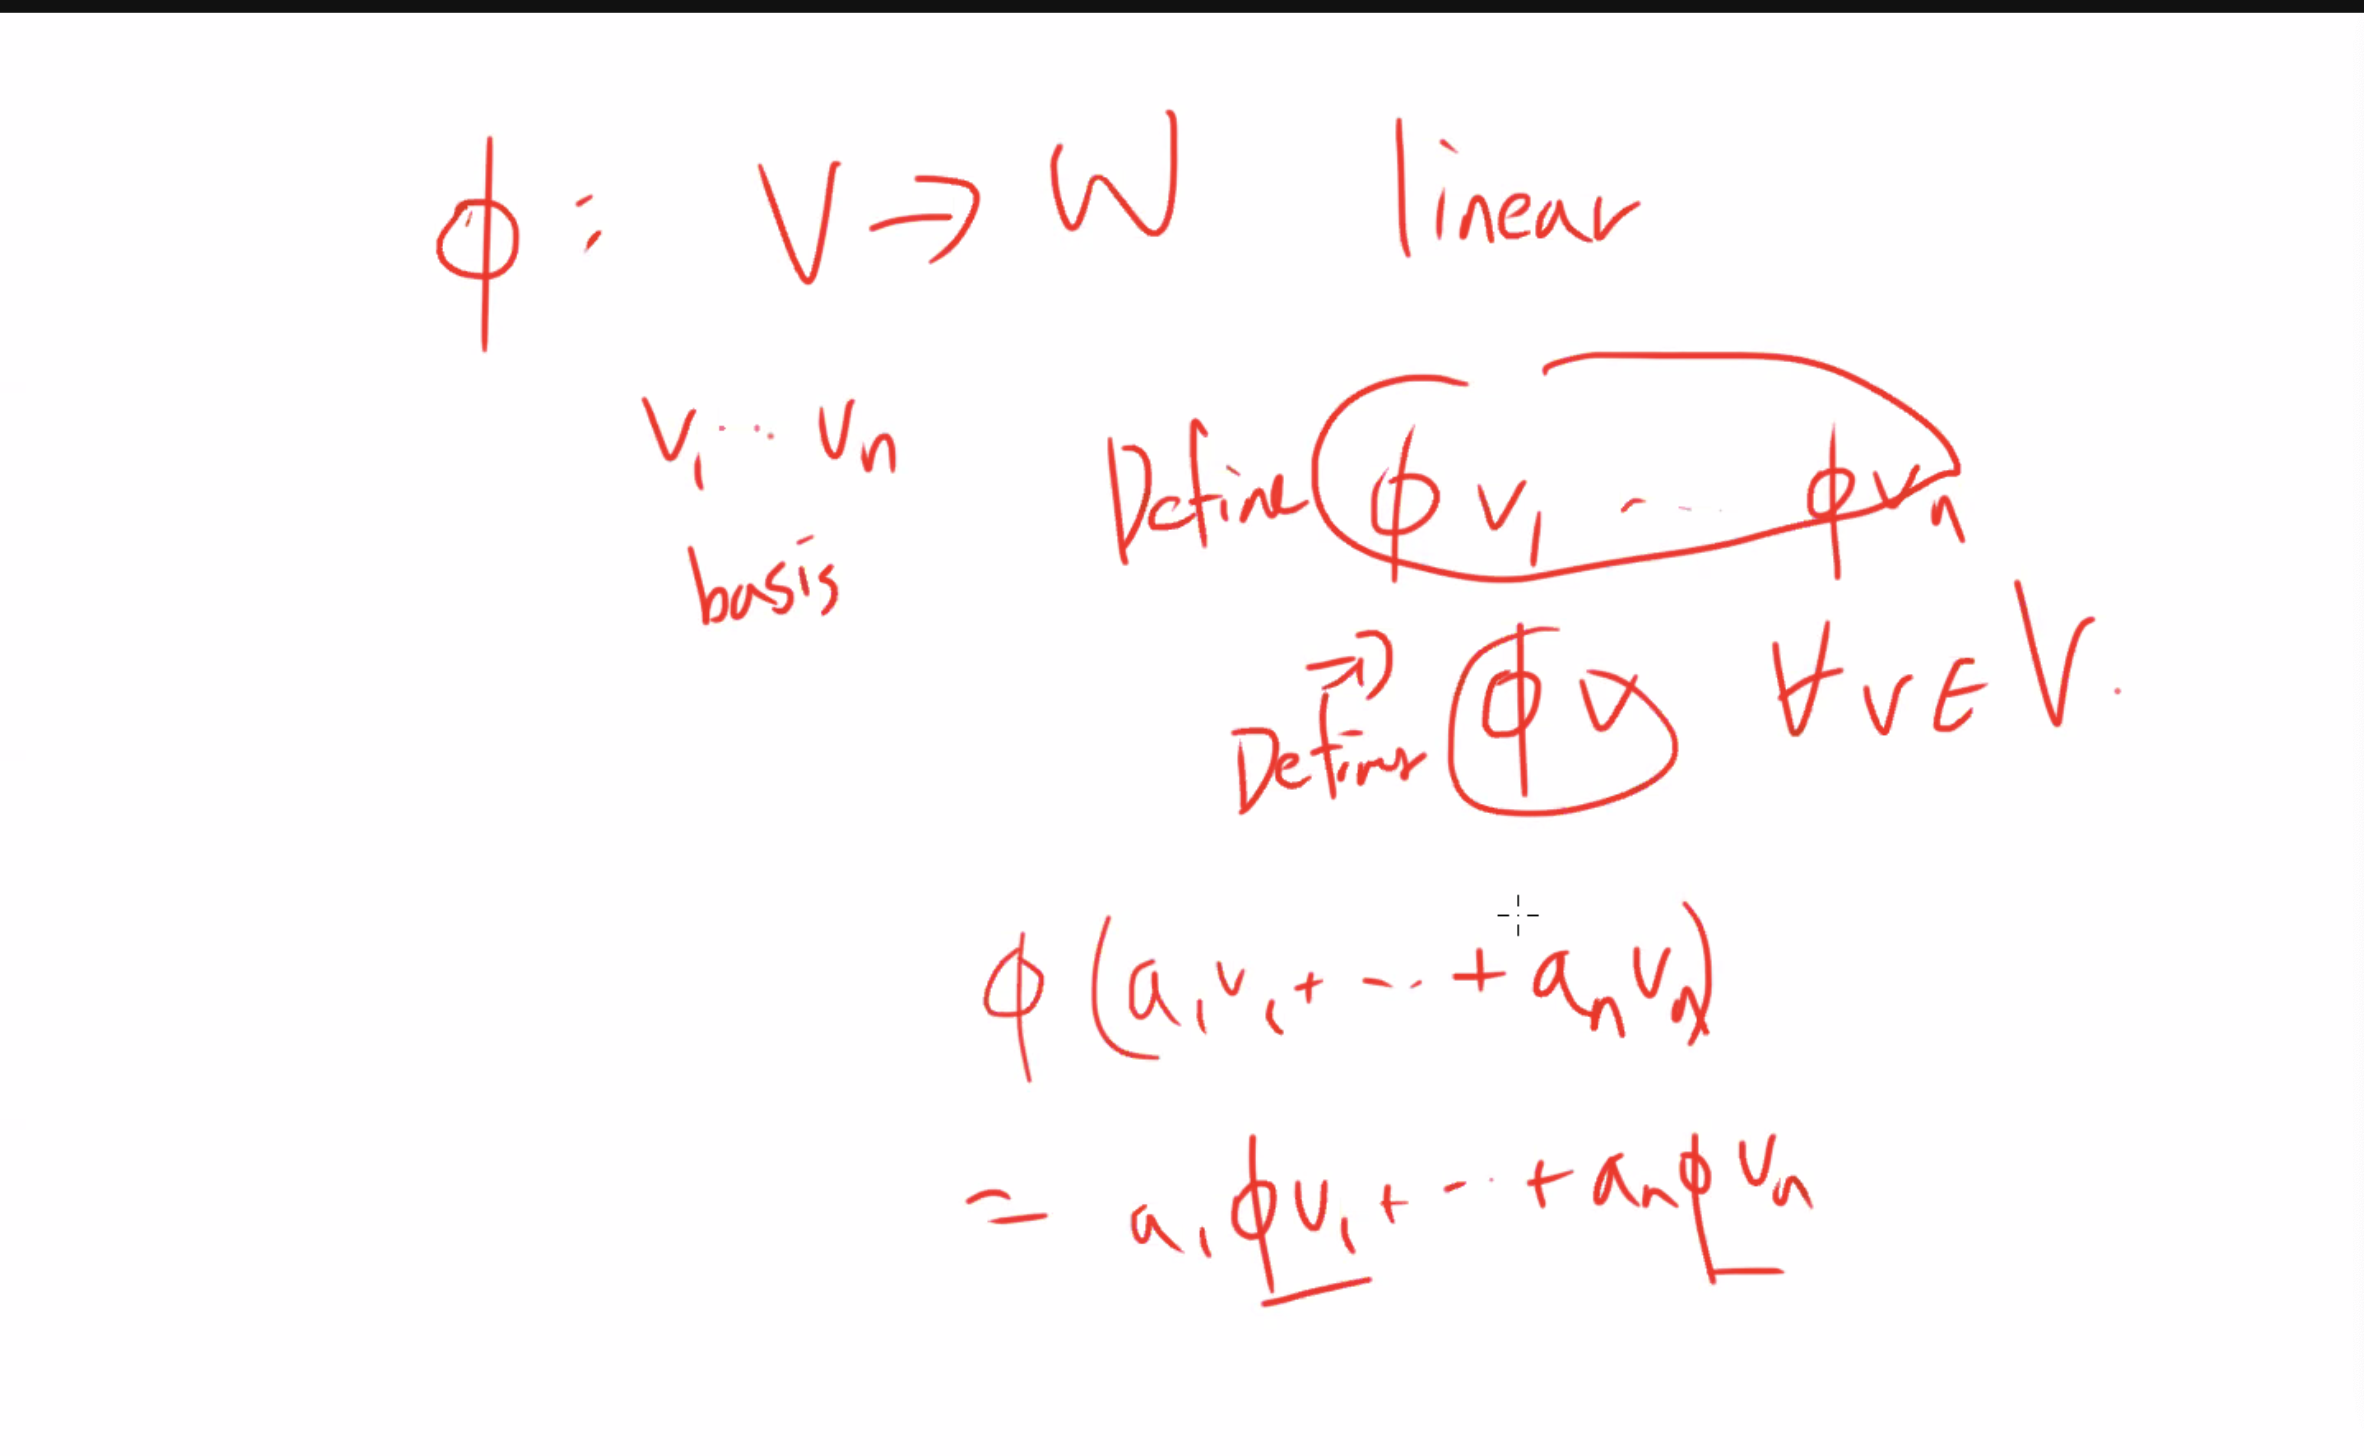 ϕ : V → W linear
v₁ ... vₙ
basis
Define ϕv₁ ... ϕvₙ
→ Defines ϕv ∀v∈V.
ϕ(a₁v₁ + ... + aₙvₙ)
= a₁ϕv₁ + ... + aₙϕvₙ